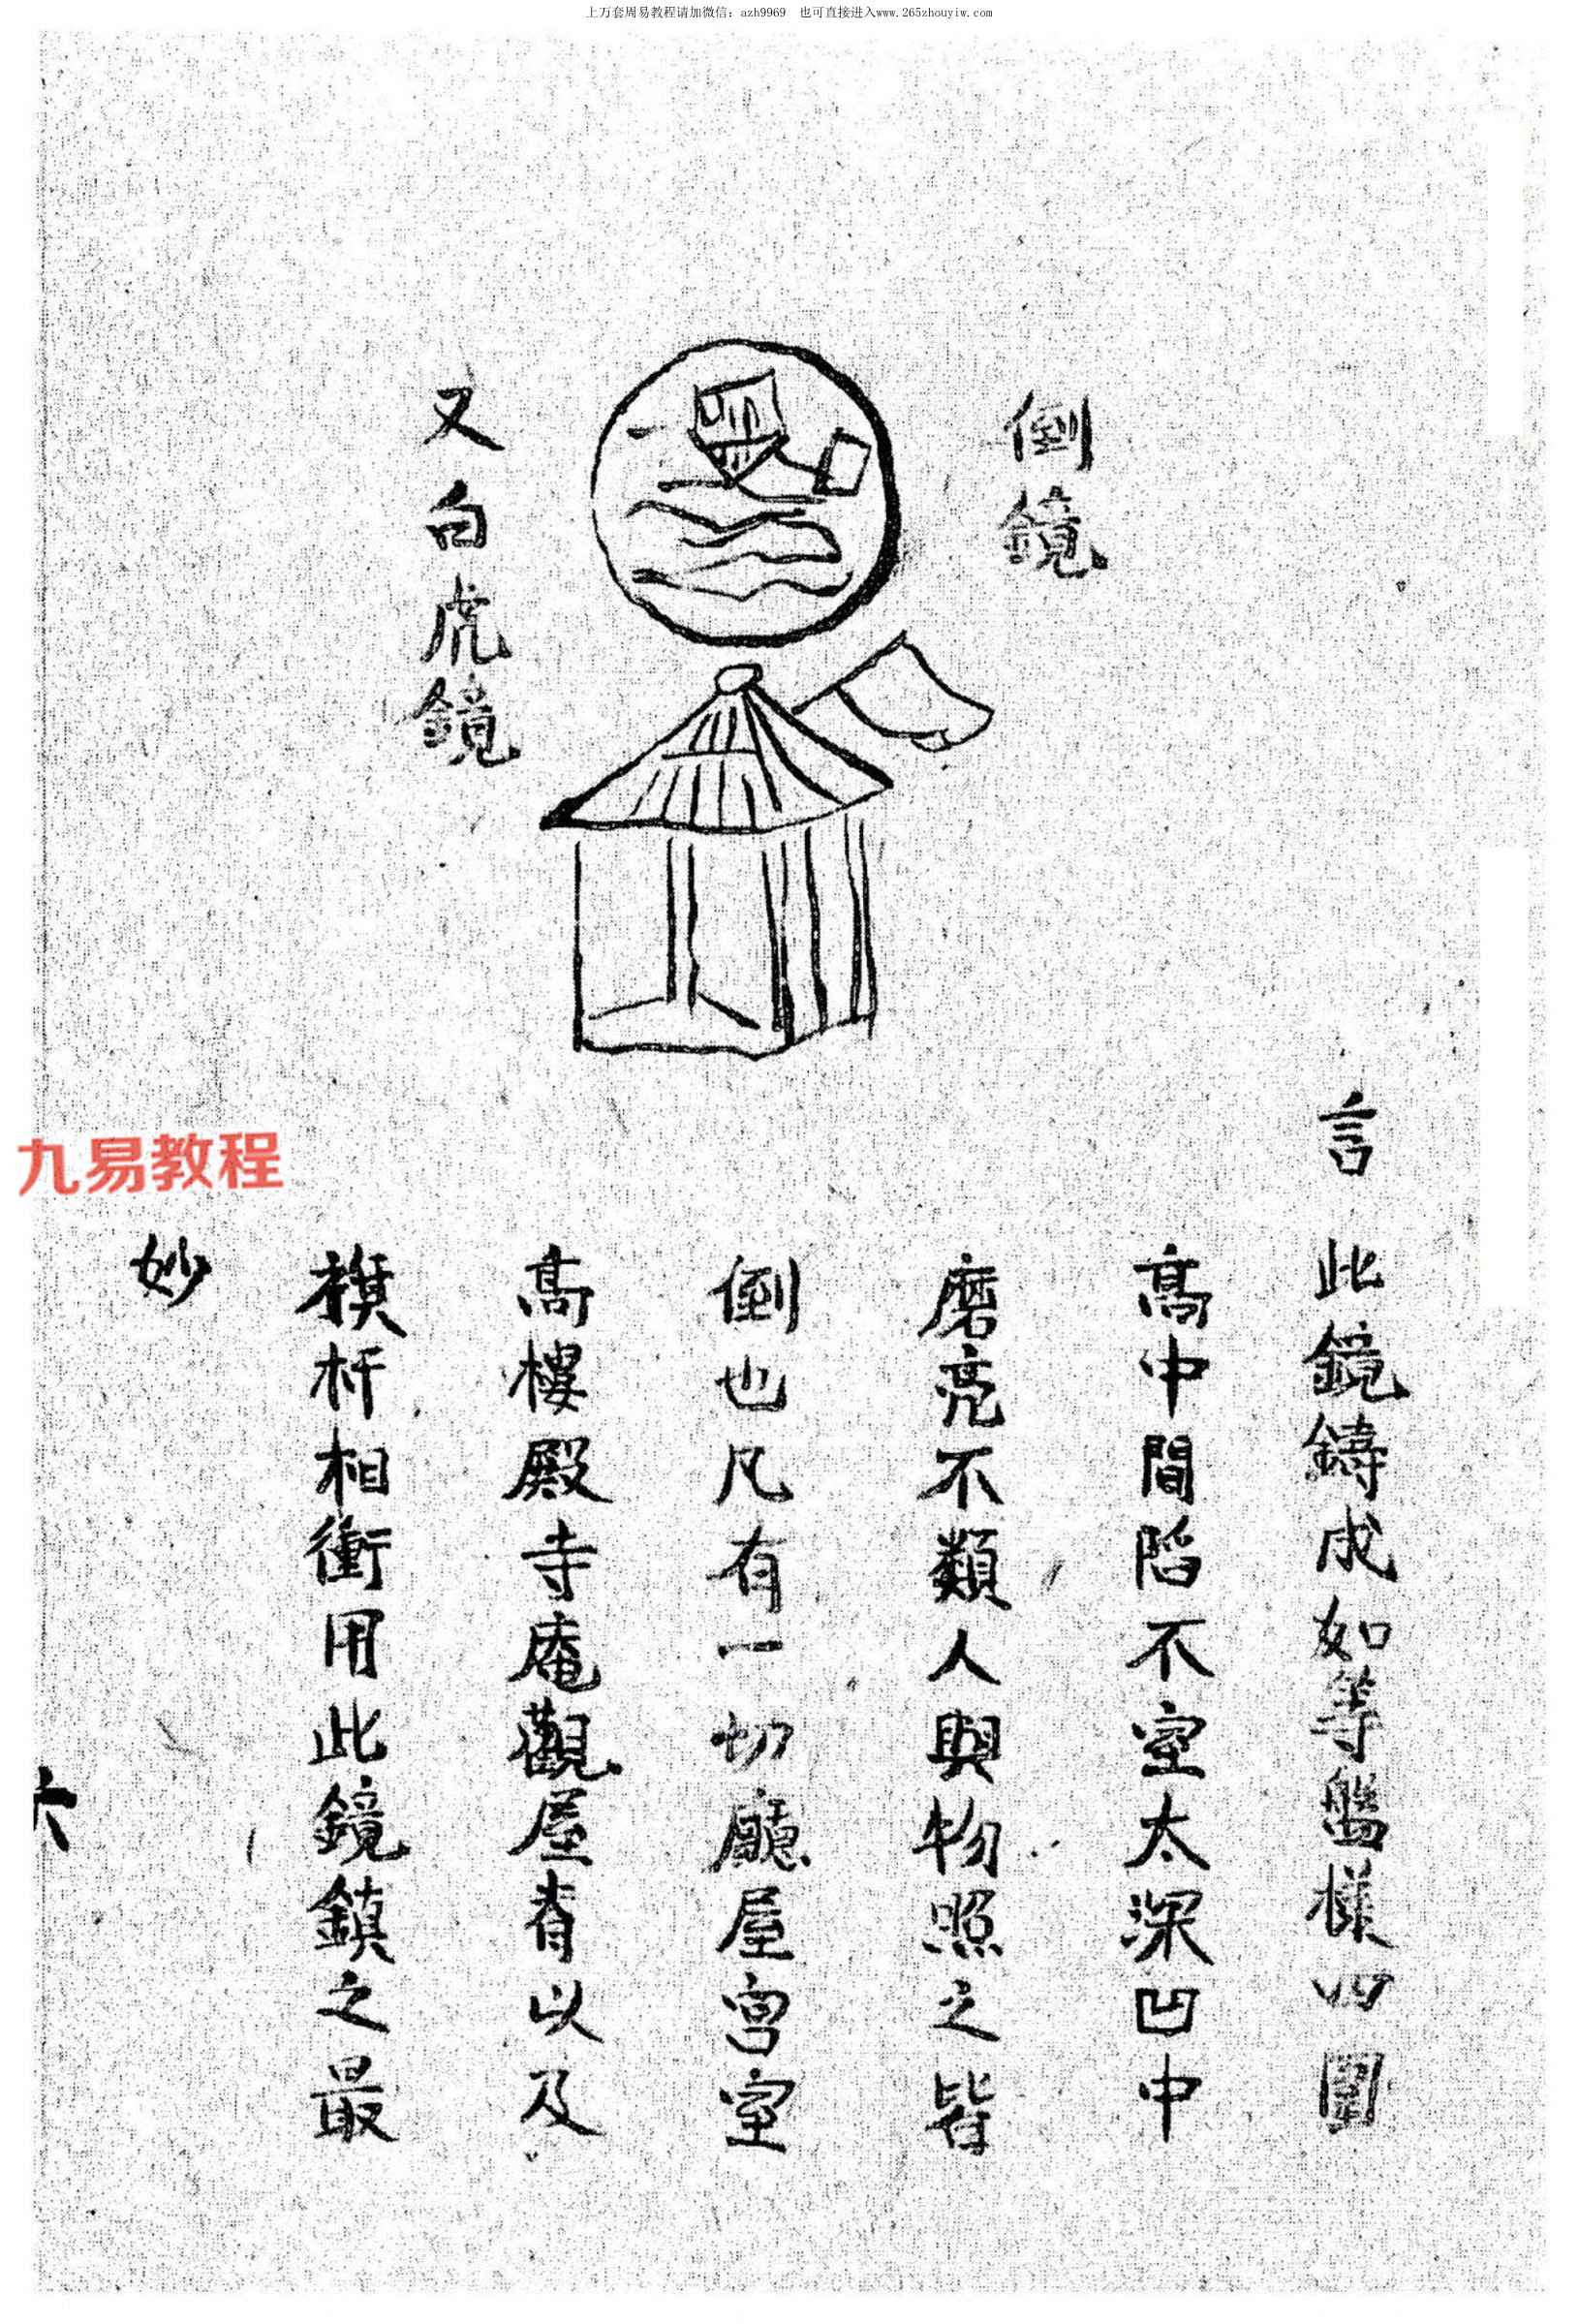 上万套周易教程请加微信：azh9969 也可直接进入www.265zhouyiw.com
倒鏡
又白虎鏡
言此鏡鑄成如等盤樣四圍
高中間陷不室太深凹中
磨亮不類人與物照之皆
倒也凡有一切廳屋宮室
高樓殿寺庵觀屋脊以及
旗杆相衝用此鏡鎮之最
妙
六
九易教程